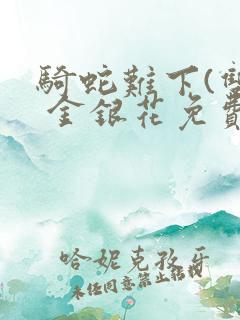 騎蛇難下(雙
金銀花免費
哈妮克孜牙
未經同意禁止搭訕